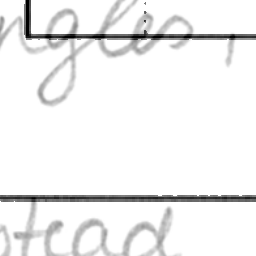 ngles,
stead